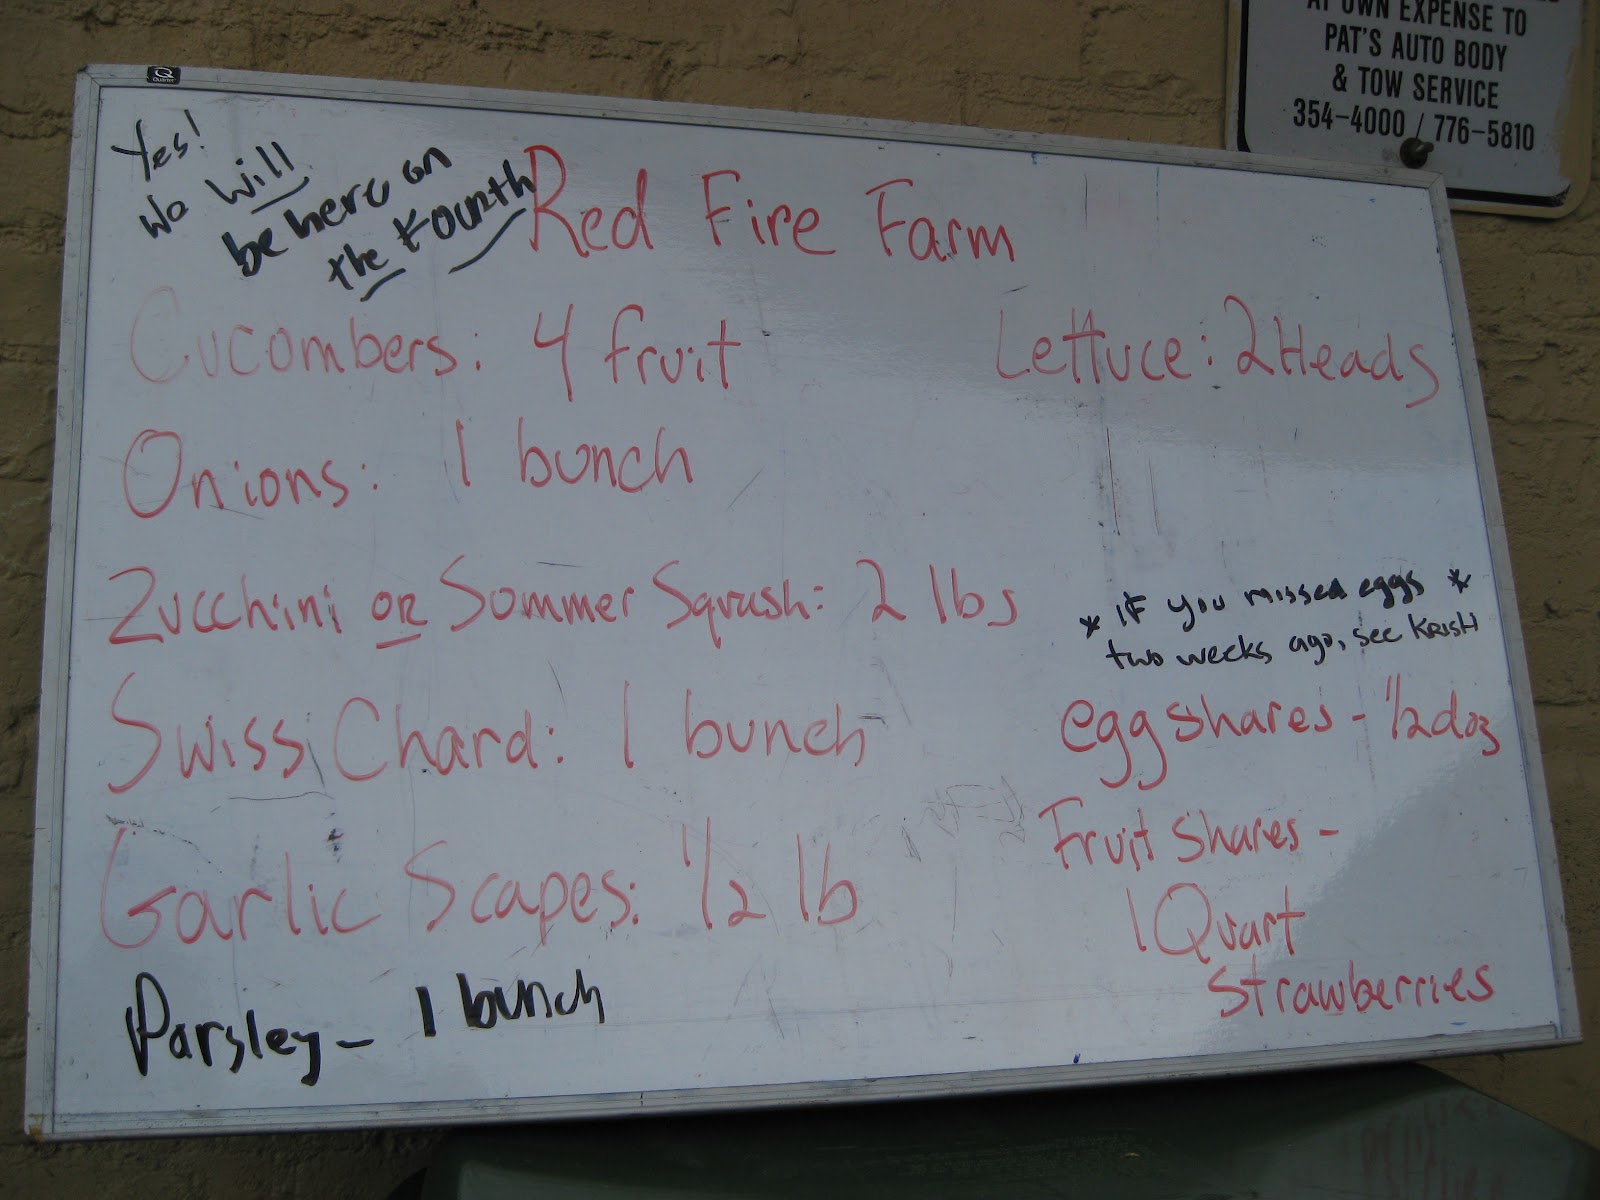 AT OWN EXPENSE TO
PAT'S AUTO BODY
& TOW SERVICE
354-4000 / 776-5810
Quartet
Yes!
We will
be here on
the Fourth
Red Fire Farm
Cucombers: 4 fruit
Lettuce: 2 Heads
Onions: 1 bunch
Zucchini or Sommer Squash: 2 lbs
Swiss Chard: 1 bunch
Garlic Scapes: 1/2 lb
Parsley - 1 bunch
* IF you missed eggs *
two weeks ago, see KRISH
egg shares - 1/2 doz
Fruit Shares -
1 Quart
Strawberries